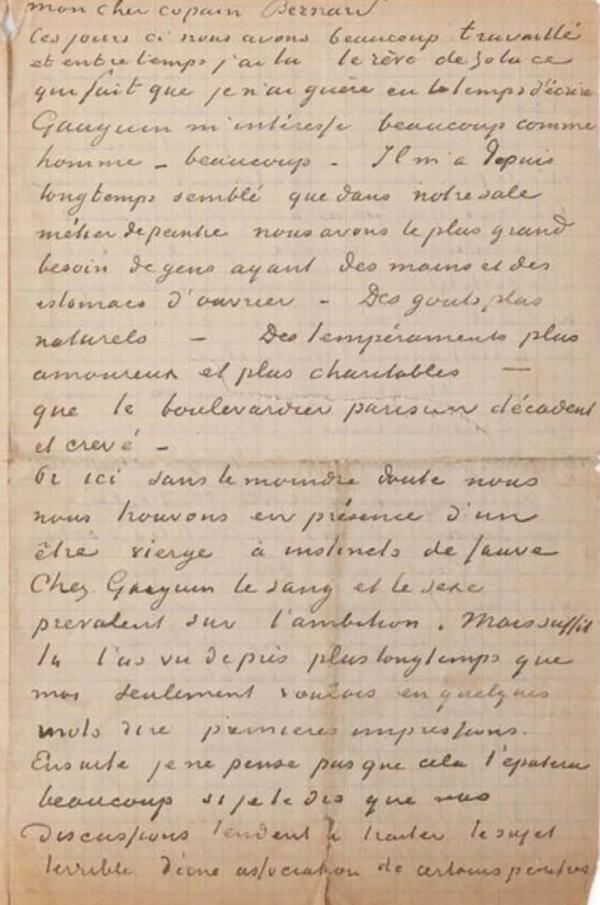 mon cher copain Bernard
Ces jours ci nous avons beaucoup travaillé
et entretemps j'ai lu le rêve de Zola ce
qui fait que je n'ai guère eu le temps d'écrire
Gauguin m'intéresse beaucoup comme
homme – beaucoup – Il m'a depuis
longtemps semblé que dans notre sale
métier de peintre nous avons le plus grand
besoin de gens ayant des mains et des
estomacs d'ouvrier – Des gouts plus
naturels – Des tempéraments plus
amoureux et plus charitables —
que le boulevardier parisien décadent
et crevé –
Or ici sans le moindre doute nous
nous trouvons en présence d'un
être vierge à instincts de fauve
Chez Gauguin le sang et le sexe
prevalent sur l'ambition. Mais suffit
tu l'as vu de près plus longtemps que
moi seulement voulais en quelques
mots dire premières impressions.
Ensuite je ne pense pas que cela t'épatera
beaucoup si je te dis que nos
discussions tendent à traiter le sujet
terrible d'une association de certains peintres